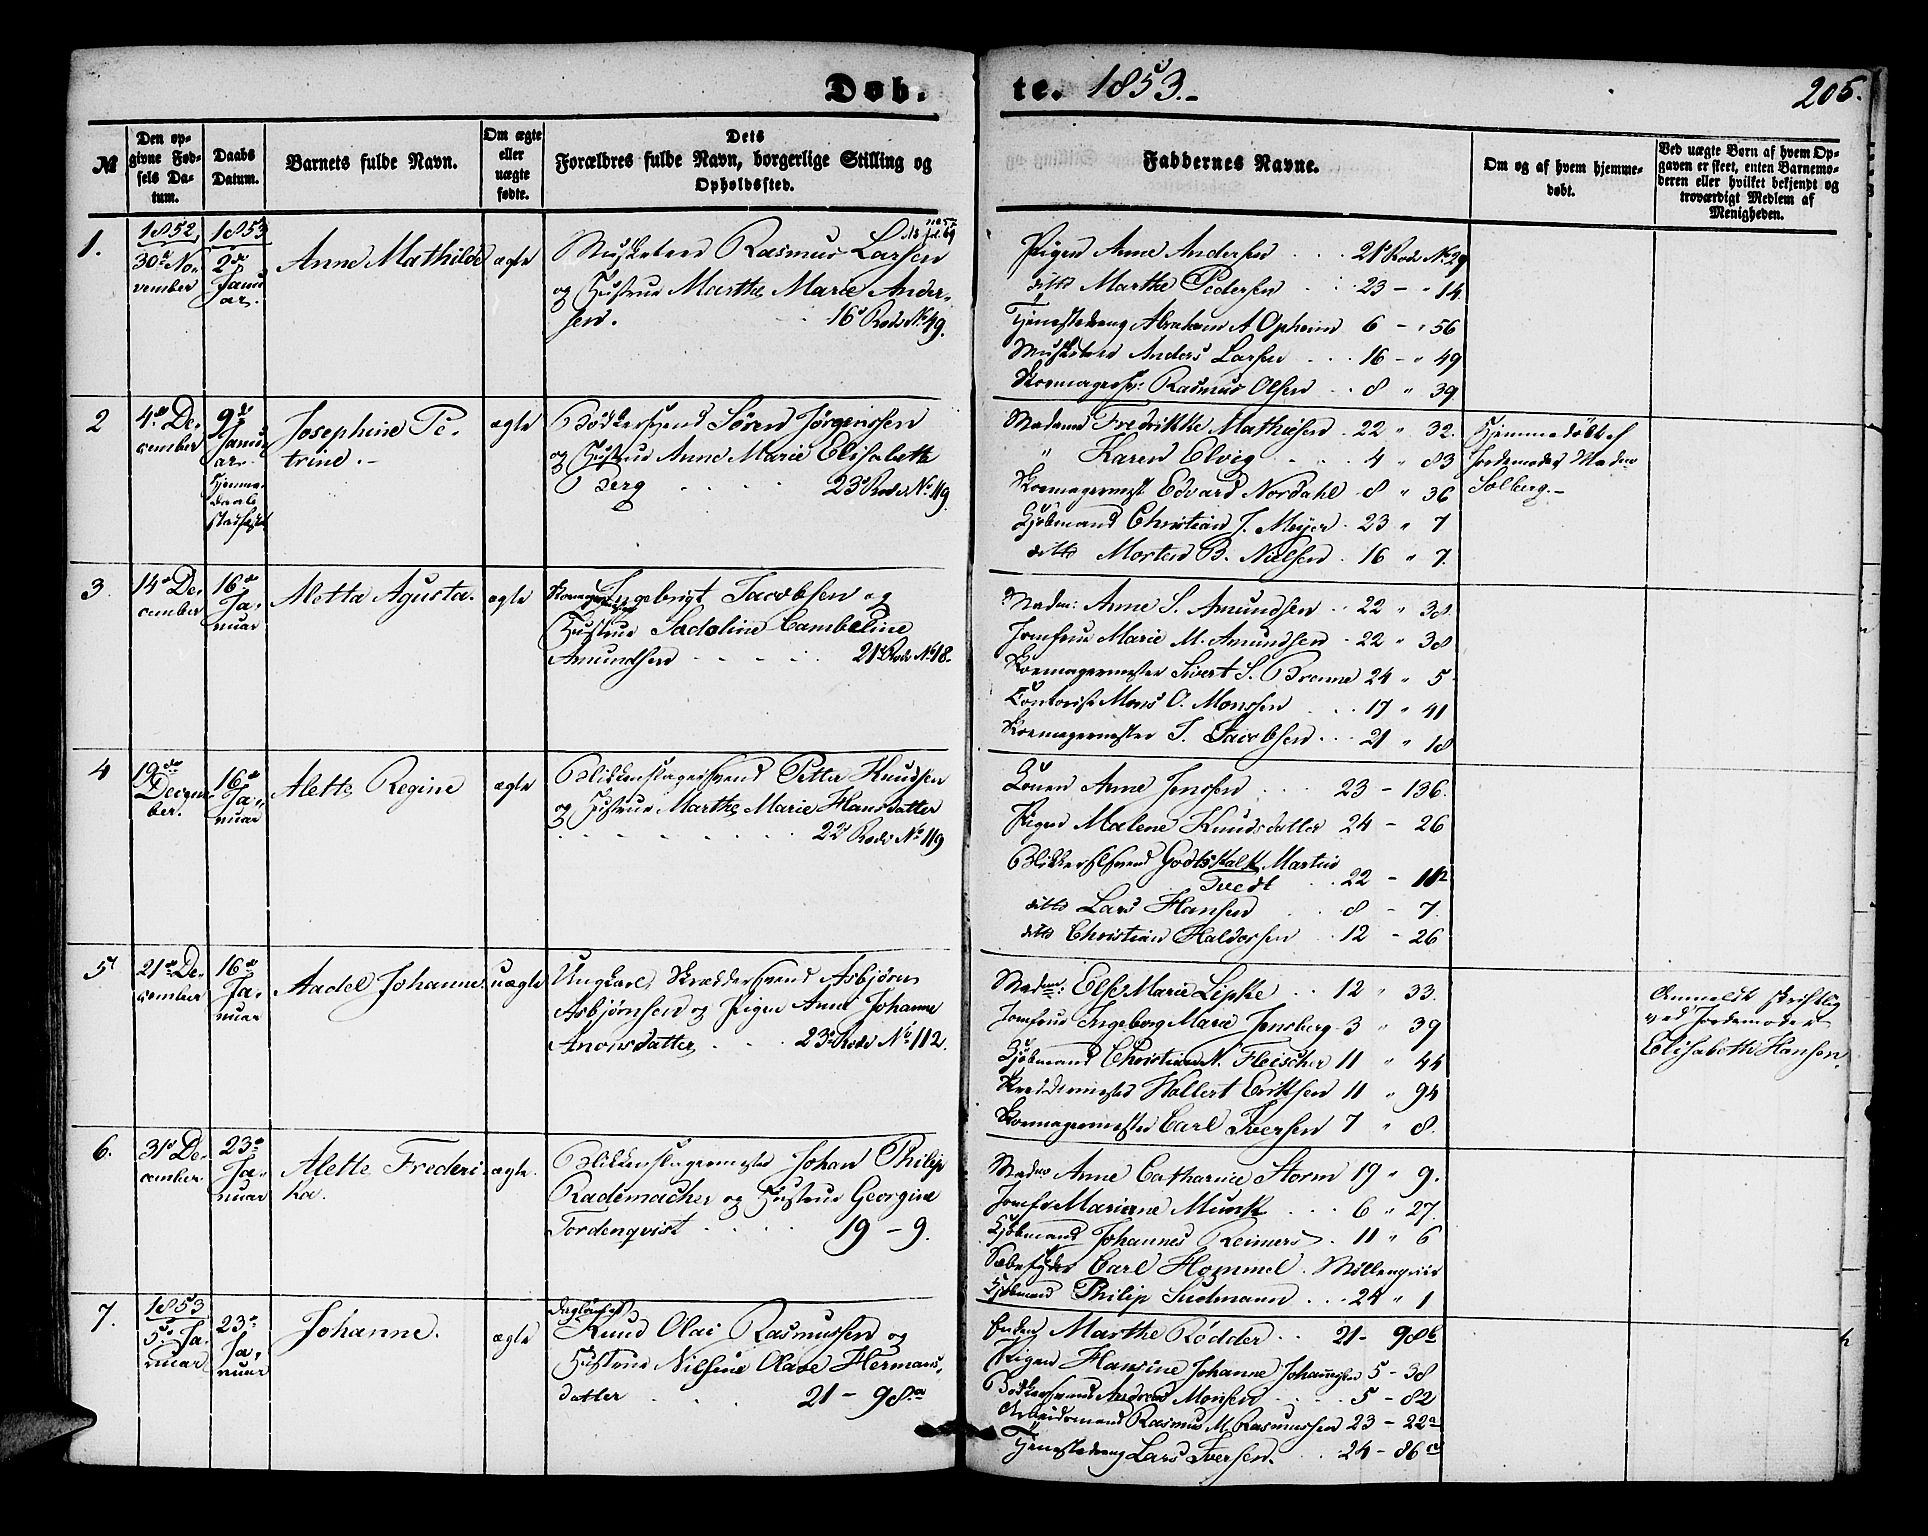 Døb-
te. 1853.-
205.
№
Den op-
givne Fød-
sels Da-
tum.
Daabs
Datum.
Barnets fulde Navn.
Om ægte
eller
uægte
fødte.
Dets
Forældres fulde Navn, borgerlige Stilling og
Opholdssted.
Faddernes Navne.
Om og af hvem hjemme-
døbt.
Ved uægte Børn af hvem Op-
gaven er skeet, enten Barnemo-
deren eller hvilket bekjendt og
troværdigt Medlem af
Menigheden.
1.
1852
30te No-
vember
1853
2de
Janu-
ar.
Anne Mathilde
ægte
Musketeer Rasmus Larsen
og Hustrue Marthe Marie Ander-
sen. 16de Rode No 49.
Pigen Anne Andersen 21de Rode No 29
ditto Marthe Pedersen 23 - " 14
Tjenestedreng Abraham A Opheim 6 - " 56
Musketeer Anders Larsen 16 - " 49
Skomagersv: Rasmus Olsen 8 " 39
2
4de De-
cember
9de
Janu-
ar.
Hjemme-
daab
stadfæstet
Josephine Pe-
trine.-
ægte
Bødkersvend Søren Jørgensen
og Hustrue Anne Marie Elisabeth
Berg 23de Rode No 119.
Madame Fredrikke Mathiesen 22 " 32.
" Karen Elvig 4 " 83
Skomagermest Edvard Nordahl 8 " 36
Kjøbmand Christian J. Meyer 23 " 7
ditto Morten B. Nielsen 16 " 7.
Hjemmedøbt af
Jordemoder Madme
Solberg.-
3.
14de De-
cember
16de
Ja-
nuar
Aletta Agusta.
ægte
Ingebrigt Jacobsen og
Hustrue Sadoline Cambeline
Amundsen 21de Rode No 18.
Madm: Anne S. Amundsen 22 " 38.
Jomfrue Marie M. Amundsen 22 " 38
Skomagermester Sivert S. Brenne 24 " 5
Contorist Mons O. Monssen 17 " 41
Skomagermester I. Jacobsen 21 " 18
4
19de
Decem-
ber.
16de
Ja-
nuar
Alette Regine
ægte
Blikkenslagersvend Petter Knudsen
og Hustrue Marthe Marie Hansdatter
22de Rode No 119
Konen Anne Jenssen 23 - 136.
Pigen Malene Knudsdatter 24 - 26
Blikkersvend Godtskalk Martin
Tvedt 22 - 112
ditto Lars Hansen 8 - 7.
ditto Christian Haldorsen 12 - 26
5
21de De-
cember
16de
Ja-
nuar
Aadel Johanne
uægte
Ungkarl, Skræddersvend Asbjørn
Asbjørnsen og Pigen Anne Johanne
Amonsdatter 23de Rode No 112.
Madm: Else Marie Lipke 12 " 33.
Jomfrue Ingeborg Marie Jensberg 3 " 39
Kjøbmand Christian N. Fleischer 11 " 44
Skreddermester Wollert Eriksen 11 " 94
Skomagermester Carl Iversen 7 " 8.
Anmeldt skriftlig
ved Jordemoder
Elisabeth Hansen.
6.
31te De-
cember
23de
Ja-
nuar
Alette Frederi-
ka.
ægte.
Blikkenslagermester Johan Philip
Rademacher og Hustrue Georgine
Tordenqvist 19 - 9.
Madme Anne Catharine Storm 19 " 9.
Jomf: Mariane Munck 6 " 27
Kjøbmand Johannes Reimers 11 " 6
Sæbesyder Carl Hommel. Møllenqviid
Kjøbmand Philip Sudmann 24 " 1
7.
1853
5te Ja-
nuar
23de
Ja-
nuar
Johanne.
ægte
Knud Olai Rasmussen og
Hustrue Nilsine Olave Hermans-
datter 21 - 98a
Enken Marthe Rødder 21 - 98b
Pigen Hansine Johanne Johannesen 5 - 38
Bødkersvend Andreas Monsen 5 - 82
Arbeidsmand Rasmus M. Rasmussen 23 - 22a
Tjenestedreng Lars Iversen. 24 - 86c